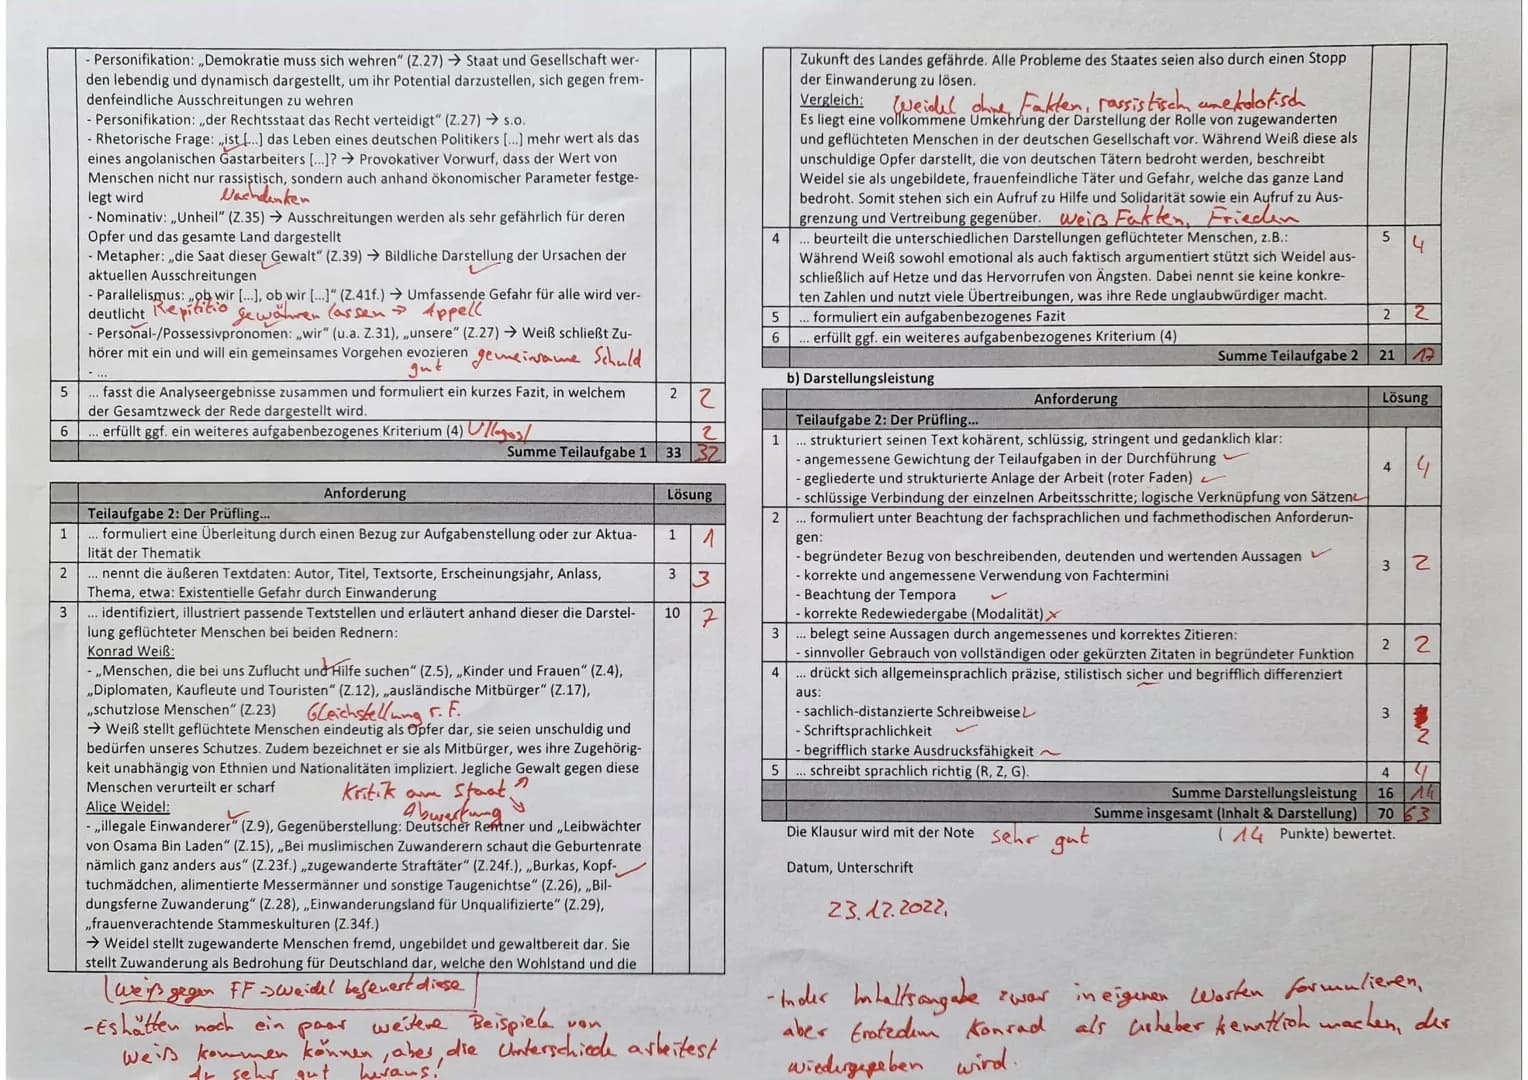 - Personifikation: „Demokratie muss sich wehren“ (Z.27) → Staat und Gesellschaft wer-
den lebendig und dynamisch dargestellt, um ihr Potential darzustellen, sich gegen frem-
denfeindliche Ausschreitungen zu wehren
- Personifikation: „der Rechtsstaat das Recht verteidigt“ (Z.27) → s.o.
- Rhetorische Frage: „ist [...] das Leben eines deutschen Politikers [...] mehr wert als das
eines angolanischen Gastarbeiters [...]? → Provokativer Vorwurf, dass der Wert von
Menschen nicht nur rassistisch, sondern auch anhand ökonomischer Parameter festge-
legt wird Nachdenken
- Nominativ: „Unheil“ (Z.35) → Ausschreitungen werden als sehr gefährlich für deren
Opfer und das gesamte Land dargestellt
- Metapher: „die Saat dieser Gewalt“ (Z.39) → Bildliche Darstellung der Ursachen der
aktuellen Ausschreitungen
- Parallelismus: „ob wir [...], ob wir [...]“ (Z.41f.) → Umfassende Gefahr für alle wird ver-
deutlicht Repititio gewähren lassen → Appell
- Personal-/Possessivpronomen: „wir“ (u.a. Z.31), „unsere“ (Z.27) → Weiß schließt Zu-
hörer mit ein und will ein gemeinsames Vorgehen evozieren gemeinsame Schuld
- ... gut
5 ... fasst die Analyseergebnisse zusammen und formuliert ein kurzes Fazit, in welchem 2 2
der Gesamtzweck der Rede dargestellt wird.
6 ... erfüllt ggf. ein weiteres aufgabenbezogenes Kriterium (4) 2
Summe Teilaufgabe 1 33 32
Anforderung Lösung
Teilaufgabe 2: Der Prüfling...
1 ... formuliert eine Überleitung durch einen Bezug zur Aufgabenstellung oder zur Aktua- 1 1
lität der Thematik
2 ... nennt die äußeren Textdaten: Autor, Titel, Textsorte, Erscheinungsjahr, Anlass, 3 3
Thema, etwa: Existentielle Gefahr durch Einwanderung
3 ... identifiziert, illustriert passende Textstellen und erläutert anhand dieser die Darstel- 10 7
lung geflüchteter Menschen bei beiden Rednern:
Konrad Weiß:
- „Menschen, die bei uns Zuflucht und Hilfe suchen“ (Z.5), „Kinder und Frauen“ (Z.4),
„Diplomaten, Kaufleute und Touristen“ (Z.12), „ausländische Mitbürger“ (Z.17),
„schutzlose Menschen“ (Z.23) Gleichstellung r. F.
→ Weiß stellt geflüchtete Menschen eindeutig als Opfer dar, sie seien unschuldig und
bedürfen unseres Schutzes. Zudem bezeichnet er sie als Mitbürger, wes ihre Zugehörig-
keit unabhängig von Ethnien und Nationalitäten impliziert. Jegliche Gewalt gegen diese
Menschen verurteilt er scharf Kritik am Staat
Alice Weidel: Abwertung
- „illegale Einwanderer“ (Z.9), Gegenüberstellung: Deutscher Rentner und „Leibwächter
von Osama Bin Laden“ (Z.15), „Bei muslimischen Zuwanderern schaut die Geburtenrate
nämlich ganz anders aus“ (Z.23f.) „zugewanderte Straftäter“ (Z.24f.), „Burkas, Kopf-
tuchmädchen, alimentierte Messermänner und sonstige Taugenichtse“ (Z.26), „Bil-
dungsferne Zuwanderung“ (Z.28), „Einwanderungsland für Unqualifizierte“ (Z.29),
„frauenverachtende Stammeskulturen (Z.34f.)
→ Weidel stellt zugewanderte Menschen fremd, ungebildet und gewaltbereit dar. Sie
stellt Zuwanderung als Bedrohung für Deutschland dar, welche den Wohlstand und die
Weiß gegen FF → Weidel befeuert diese
- Es hätten noch ein paar weitere Beispiele von
Weiß kommen können, aber die Unterschiede arbeitest
du sehr gut heraus!
Zukunft des Landes gefährde. Alle Probleme des Staates seien also durch einen Stopp
der Einwanderung zu lösen.
Vergleich: Weidel ohne Fakten, rassistisch, anekdotisch
Es liegt eine vollkommene Umkehrung der Darstellung der Rolle von zugewanderten
und geflüchteten Menschen in der deutschen Gesellschaft vor. Während Weiß diese als
unschuldige Opfer darstellt, die von deutschen Tätern bedroht werden, beschreibt
Weidel sie als ungebildete, frauenfeindliche Täter und Gefahr, welche das ganze Land
bedroht. Somit stehen sich ein Aufruf zu Hilfe und Solidarität sowie ein Aufruf zu Aus-
grenzung und Vertreibung gegenüber. Weiß Fakten, Frieden
4 ... beurteilt die unterschiedlichen Darstellungen geflüchteter Menschen, z.B.: 5 4
Während Weiß sowohl emotional als auch faktisch argumentiert stützt sich Weidel aus-
schließlich auf Hetze und das Hervorrufen von Ängsten. Dabei nennt sie keine konkre-
ten Zahlen und nutzt viele Übertreibungen, was ihre Rede unglaubwürdiger macht.
5 ... formuliert ein aufgabenbezogenes Fazit 2 2
6 ... erfüllt ggf. ein weiteres aufgabenbezogenes Kriterium (4)
Summe Teilaufgabe 2 21 17
b) Darstellungsleistung
Anforderung Lösung
Teilaufgabe 2: Der Prüfling...
1 ... strukturiert seinen Text kohärent, schlüssig, stringent und gedanklich klar: 4 4
- angemessene Gewichtung der Teilaufgaben in der Durchführung
- gegliederte und strukturierte Anlage der Arbeit (roter Faden)
- schlüssige Verbindung der einzelnen Arbeitsschritte; logische Verknüpfung von Sätzen
2 ... formuliert unter Beachtung der fachsprachlichen und fachmethodischen Anforderun- 3 2
gen:
- begründeter Bezug von beschreibenden, deutenden und wertenden Aussagen
- korrekte und angemessene Verwendung von Fachtermini
- Beachtung der Tempora
- korrekte Redewiedergabe (Modalität)
3 ... belegt seine Aussagen durch angemessenes und korrektes Zitieren: 2 2
- sinnvoller Gebrauch von vollständigen oder gekürzten Zitaten in begründeter Funktion
4 ... drückt sich allgemeinsprachlich präzise, stilistisch sicher und begrifflich differenziert 3 2
aus:
- sachlich-distanzierte Schreibweise
- Schriftsprachlichkeit
- begrifflich starke Ausdrucksfähigkeit
5 ... schreibt sprachlich richtig (R, Z, G). 4 4
Summe Darstellungsleistung 16 14
Summe insgesamt (Inhalt & Darstellung) 70 63
Die Klausur wird mit der Note sehr gut ( 14 Punkte) bewertet.
Datum, Unterschrift
23.12.2022,
- In der Inhaltsangabe zwar in eigenen Worten formulieren,
aber trotzdem Konrad als Urheber kenntlich machen, der
wiedergegeben wird.